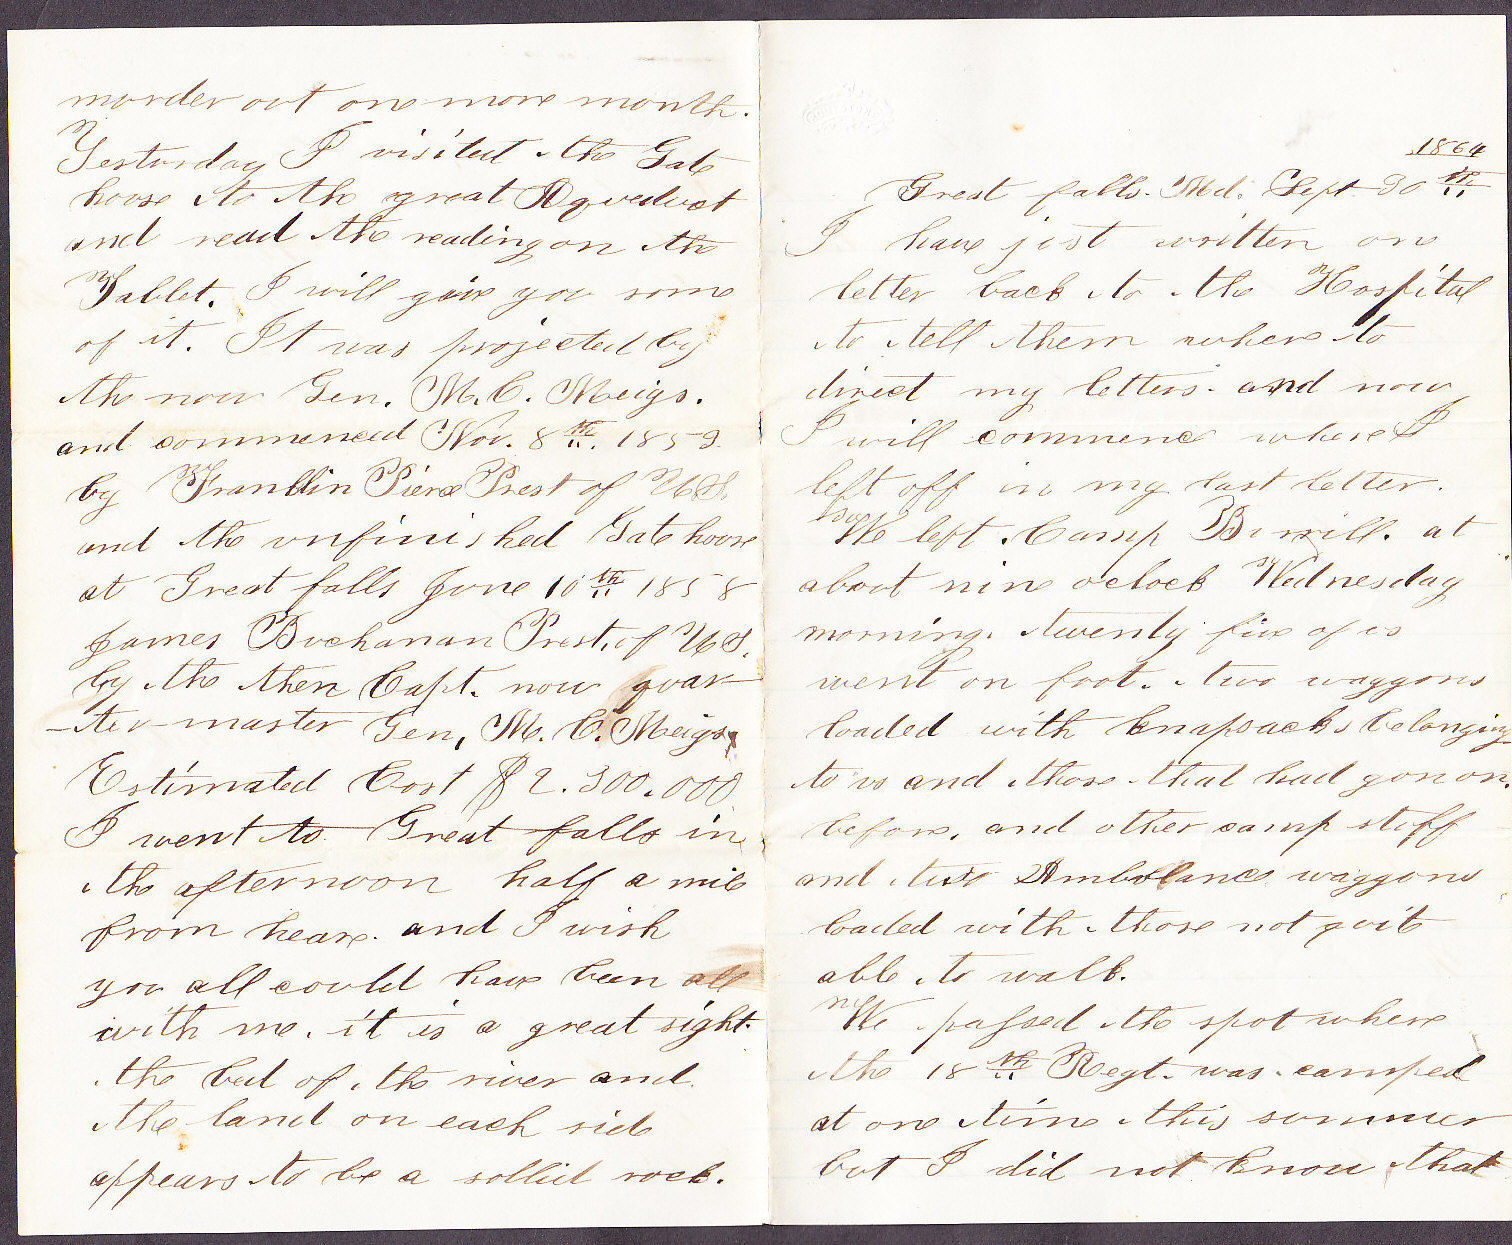 murder out one more month.
Yesturday I visited the Gate
house to the great Aqueduct
and read the reading on the
Tablet. I will give you some
of it. It was projected by
the now Gen. M. C. Meigs.
and commenced Nov. 8th. 1853
by Franklin Pierce Prest of U S.
and the unfinished Gate house
at Great falls June 10th 1858
James Buchanan Prest. of U S.
by the then Capt. now quar-
-ter-master Gen, M. C. Meigs.
Estimated Cost $2.300.000
I went to Great falls in
the afternoon half a mile
from heare. and I wish
you all could have been all
with me. it is a great sight.
the bed of the river and
the land on each side
appears to be a sollid rock.
1864
Great falls. Md. Sept. 30th
I have just written one
letter back to the Hospital
to tell them where to
direct my letters. and now
I will commence where I
left off in my last letter.
We left Camp Birrill. at
about nine oclock Wednesday
morning. twenty five of us
went on foot. two waggons
loaded with knapsacks belonging
to us and those that had gon on
before, and other camp stuff
and two Ambulance waggons
loaded with those not quite
able to walk.
We passed the spot where
the 18th Regt. was camped
at one time this summer
but I did not know that